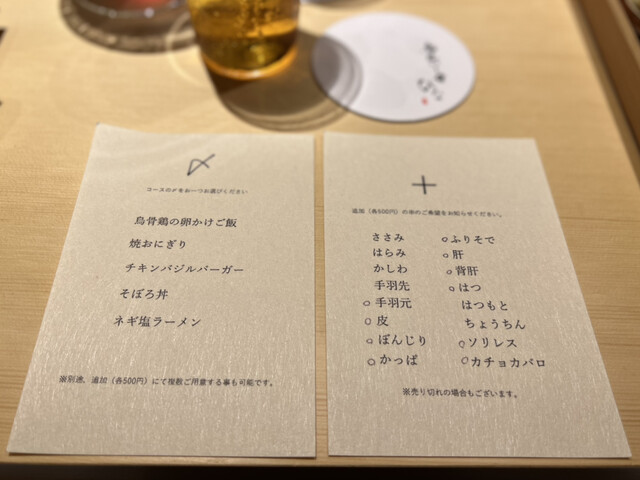 〆
コースの〆をお一つお選びください
烏骨鶏の卵かけご飯
焼おにぎり
チキンバジルバーガー
そぼろ丼
ネギ塩ラーメン
※別途、追加(各500円)にて複数ご用意する事も可能です。
＋
追加(各500円)の串のご希望をお知らせください。
ささみ
はらみ
かしわ
手羽先
○手羽元
○皮
○ぼんじり
○かっぱ
○ふりそで
○肝
○背肝
○はつ
はつもと
ちょうちん
○ソリレス
○カチョカバロ
※売り切れの場合もございます。